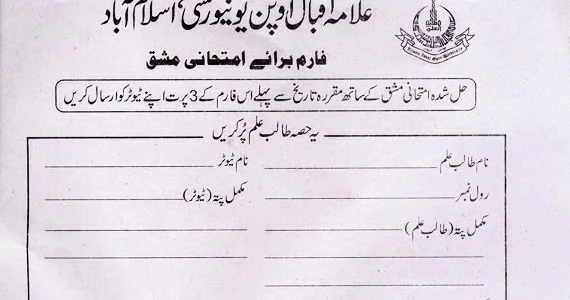 علامہ اقبال اوپن یونیورسٹی، اسلام آباد
فارم برائے امتحانی مشق
حل شدہ امتحانی مشق کے ساتھ مقررہ تاریخ سے پہلے اس فارم کے 3 پرت اپنے ٹیوٹر کو ارسال کریں
یہ حصہ طالب علم پُر کریں
نام طالب علم نام ٹیوٹر
رول نمبر مکمل پتہ (ٹیوٹر)
مکمل پتہ (طالب علم)